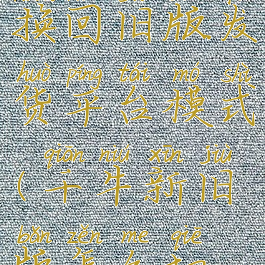 换回旧版发
huò píng tái mó shì
货平台模式
qiān niú xīn jiù
(千牛新旧
bǎn zěn me qiē
版怎么切